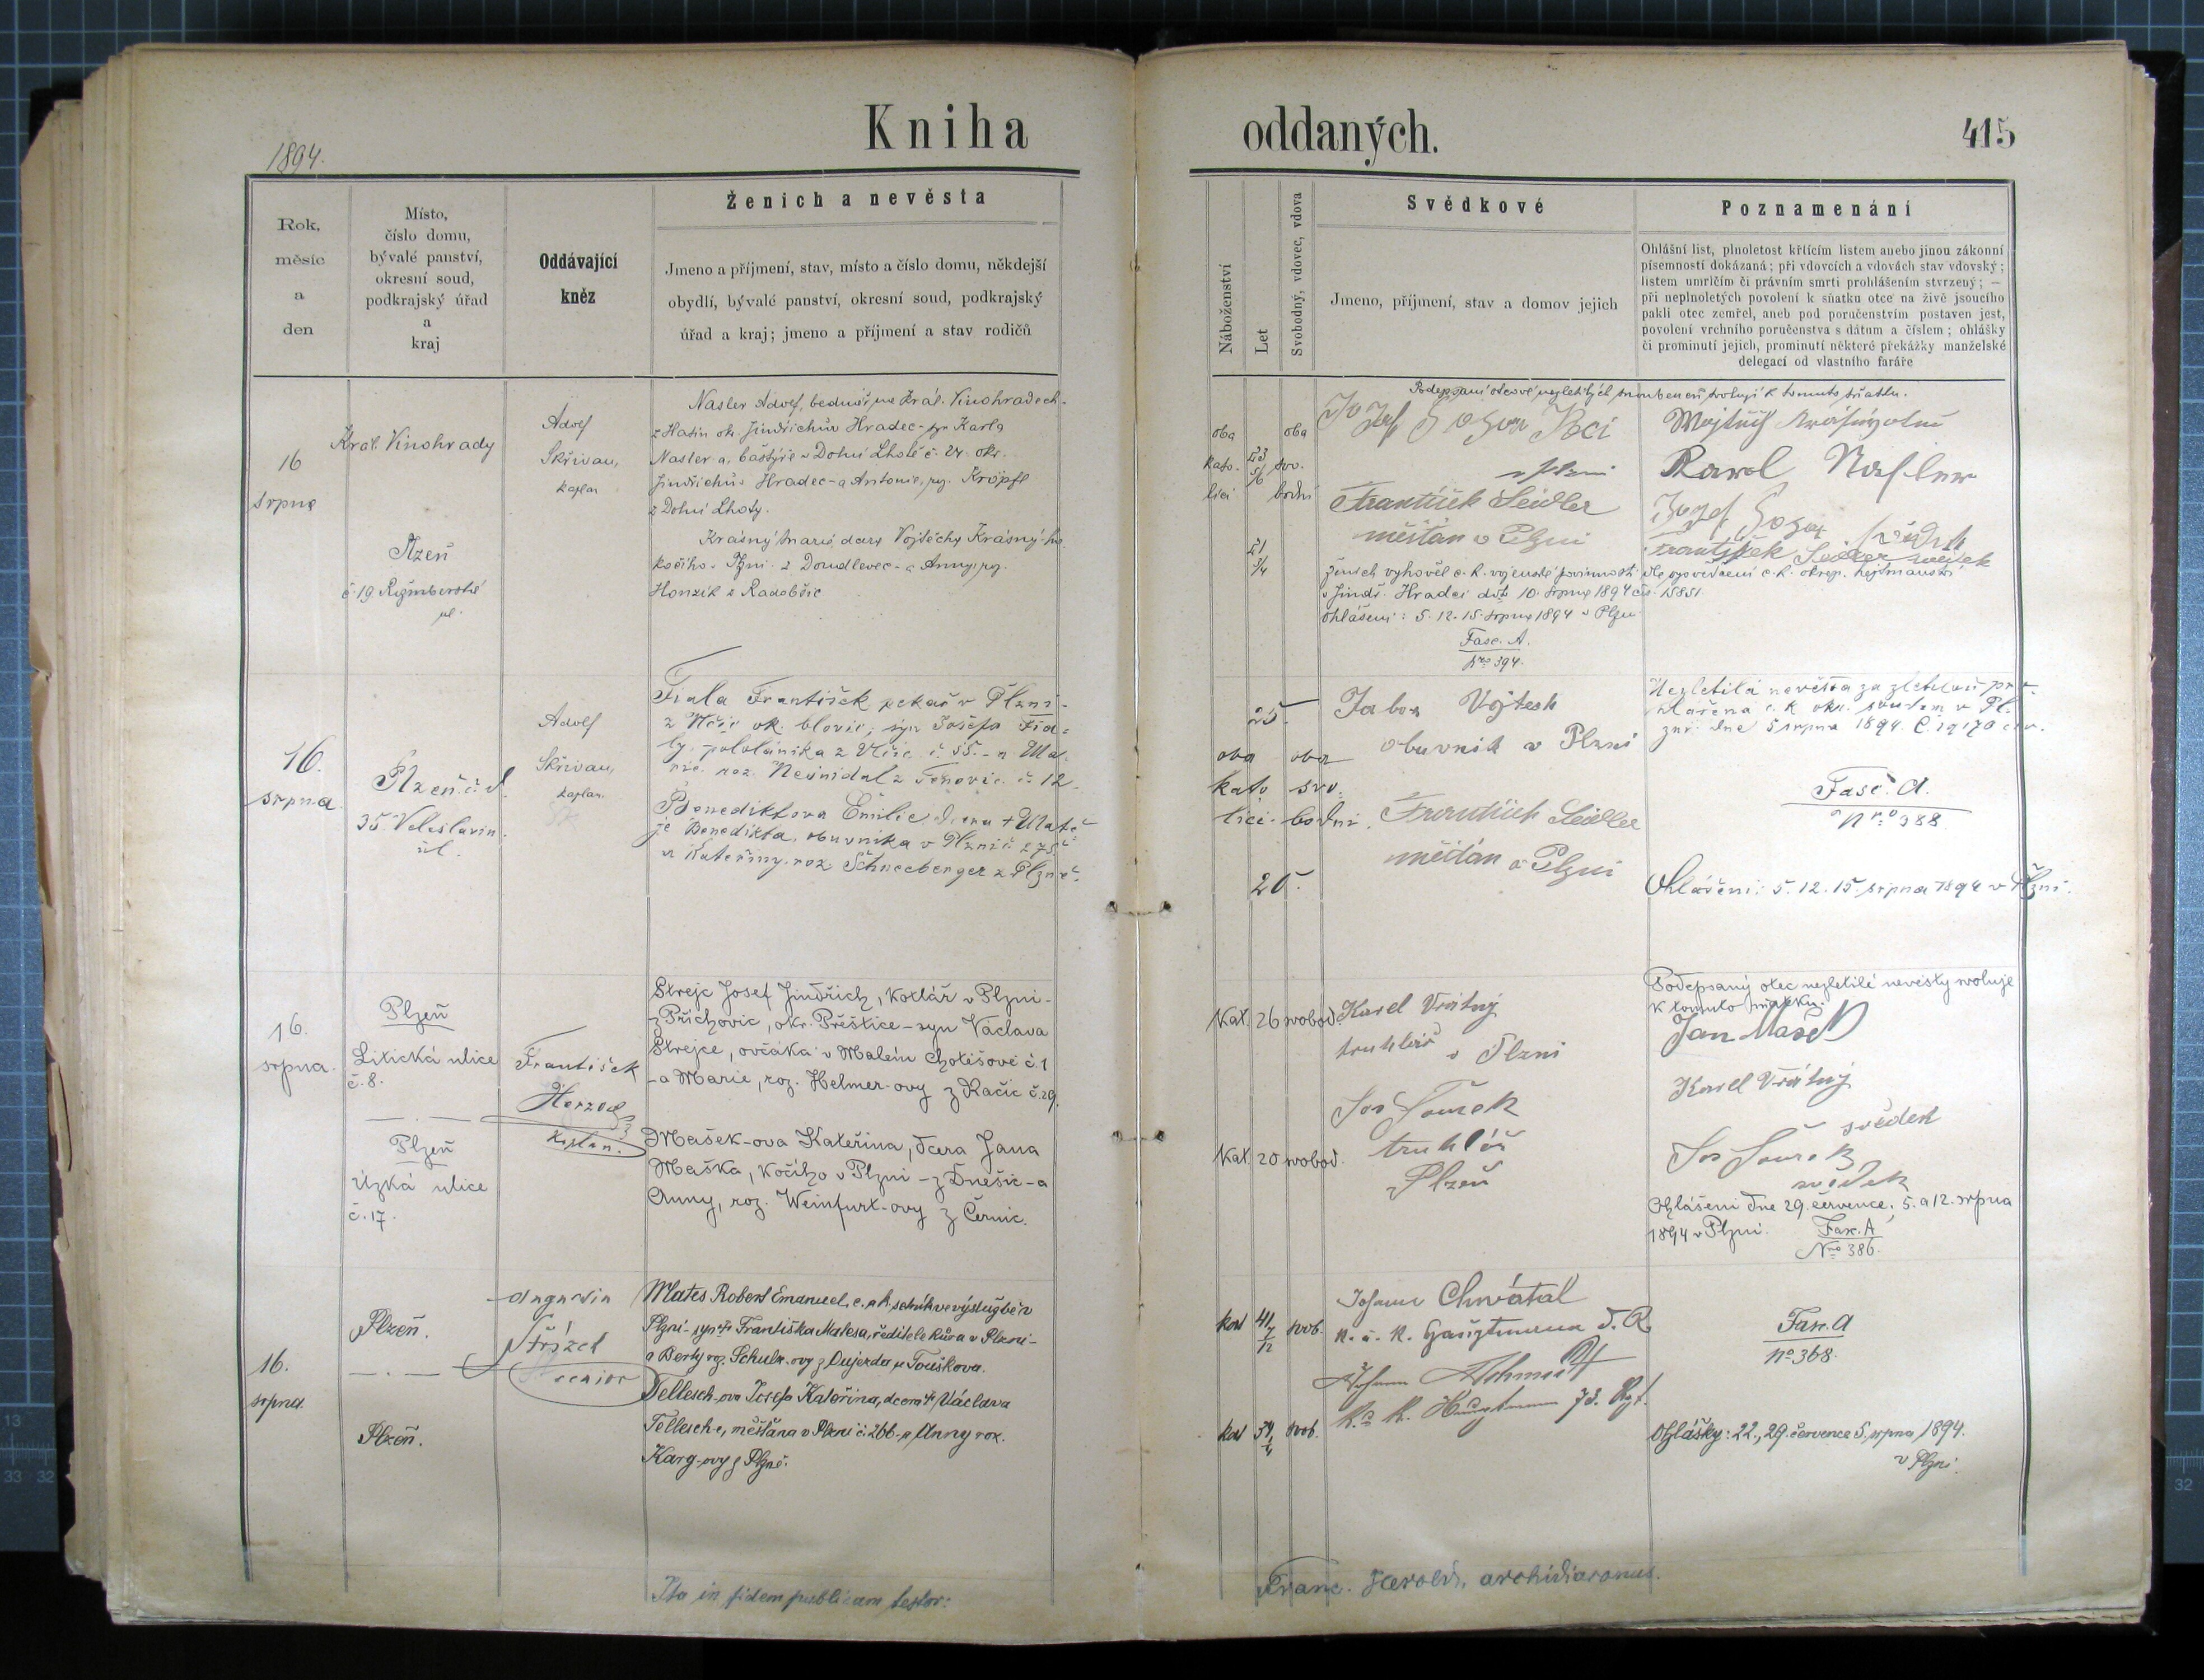 1894.
Kniha
oddaných.
415
Rok,
měsíc
a
den
Místo,
číslo domu,
bývalé panství,
okresní soud,
podkrajský úřad
a
kraj
Oddávající
kněz
Ženich a nevěsta
Jmeno a příjmení, stav, místo a číslo domu, někdejší
obydlí, bývalé panství, okresní soud, podkrajský
úřad a kraj; jmeno a příjmení a stav rodičů
Náboženství
Let
Svobodný, vdovec, vdova
Svědkové
Jmeno, příjmení, stav a domov jejich
Poznamenání
Ohlášní list, plnoletost křtícím listem anebo jinou zákonní
písemností dokázaná; při vdovcích a vdovách stav vdovský;
listem umrlčím či právním smrti prohlášením stvrzený; —
při neplnoletých povolení k sňatku otce na živě jsoucího
pakli otec zemřel, aneb pod poručenstvím postaven jest,
povolení vrchního poručenstva s dátum a číslem; ohlášky
či prominutí jejich, prominutí některé překážky manželské
delegací od vlastního faráře
16
srpna
Král. Vinohrady
Plzeň
č. 19
ul.
Adolf
Skřivan,
kaplan
Nasler Adolf, bednář na Král. Vinohradech-
z Hatín ok. Jindřichův Hradec- syn Karla
Nasler a, baštýře v Dolní Lhotě č. 24. okr.
Jindřichův Hradec- a Antonie, roz. Kröpfl
z Dolní Lhoty.
Krásný Marie dcera Vojtěcha Krásný-ho
kočího v Plzni z Doudlevec- a Anny, roz.
Honzík z Radobčic
oba
kato-
lici
23
5/6
21
3/4
oba
svo-
bodní
Podepsaní otcové nezletilých snoubenců svolují k tomuto sňatku.
v Plzni
František Seidler
měšťan v Plzni
Karel Nasler
František Seidler svědek
ženich vyhověl c. k. vojenské povinnosti dle vysvědčení c. k. okresn. hejtmanství
v Jindř. Hradci dto 10. srpna 1894 čís. 15851.
Ohlášeni: 5. 12. 15. srpna 1894 v Plzni
Fasc. A.
Nro 394.
16.
srpna.
Plzeň č. d.
35. Veleslavín.
ul.
Adolf
Skřivan,
kaplan.
Fiala František pekař v Plzni-
z Vlčic ok. blovic, syn Josefa Fia-
ly, pololánika z Vlčic č 55.- a Ma-
rie roz. Nesnídal z č. 12
Benediktova Emilie dcera + Matě-
je Benedikta, obuvníka v Plzni č. 275.
a Kateřiny, roz. Schneeberger z Plzně.
oba
kato
lici.
25
20.
oba
svo.
bodni.
Tabor Vojtesh
obuvník v Plzni
František Seidler
měšťan v Plzni
Nezletilá nevěsta za zletilou pro-
hlášena c. k. okr. soudem v Pl-
zni dne 5 srpna 1894.
Fasc. A.
Nro 388
Ohlášeni: 5. 12. 15. srpna 1894 v Plzni.
16.
srpna.
Plzeň
Litická ulice
č. 8.
Plzeň
Úzká ulice
č. 17.
František
Herzog
kaplan.
Strejc Josef Jindřich, kotlář v Plzni-
z Příchovic, okr. Přeštice-syn Václava
Strejce, ovčáka v Malém Chotěšově č. 1
-a Marie, roz. Helmer-ovy z Račic č. 29.
Mašek-ova Kateřina, dcera Jana
Maška, kočího v Plzni-z Dnešic-a
Anny, roz. Weinfurt-ovy z Černic.
Kat. 26 svobod.
Kat. 20 svobod.
Karel Vrátný
truhlář v Plzni
Jos Šourek
truhlář
Plzeň
Podepsaný otec nezletilé nevěsty svoluje
k tomuto sňatku.
Jan Mašek
Karel Vrátný
svědek
Jos Šourek
svědek
Ohlášeni dne 29. července, 5. a 12. srpna
1894 v Plzni.
Fasc. A
Nro 386.
16.
srpna.
Plzeň.
Plzeň.
Augustin
Střízek
senior
Mates Robert Emanuel, c. a k. setník ve výslužbě v
Plzni- syn Františka Matesa, ředitele kůru v Plzni-
a Berty roz. Schulz-ovy z Oujezda u Touškova.
Tellesch-ova Josefa Kateřina, dcera Václava
Tellesch-e, měšťana v Plzni č. 266- a Anny roz.
Karg-ovy z Plzně.
kat 41 7/12 svob.
kat 34 svob.
Johann Chwátal
k. u. k. Hauptmann d. R.
Johann Schmidt
k. u. k. Hauptmann 73. Rgt.
Fasc. A
No 368.
Ohlášky: 22., 29. července 5. srpna 1894.
v Plzni.
Ita in fidem publicam testor:
Franc. Herold, archidiaconus.